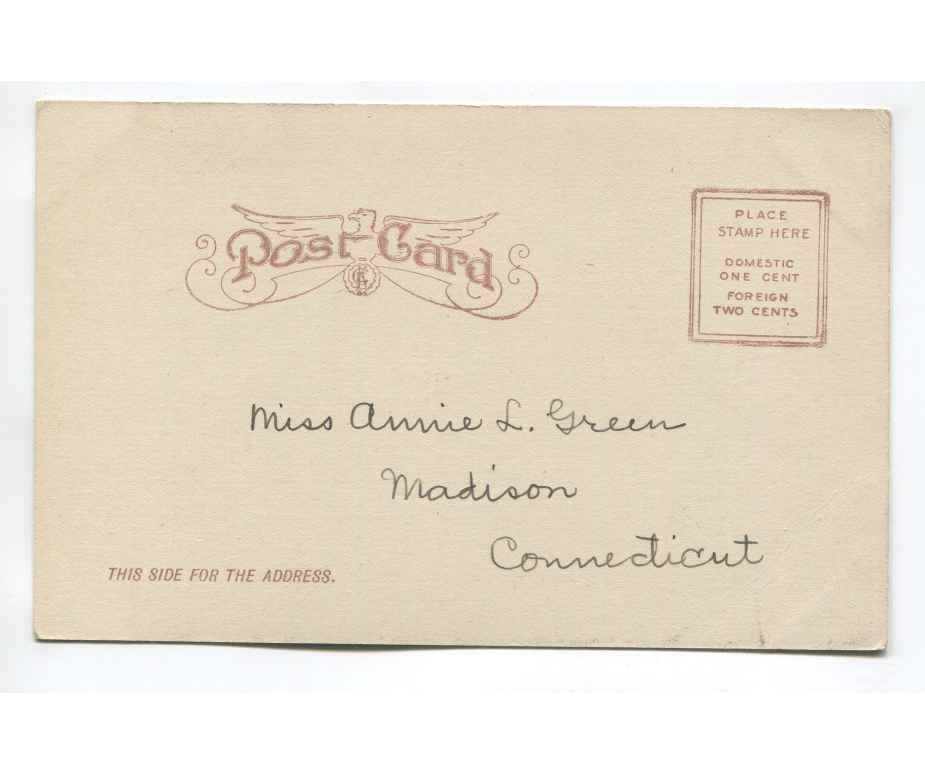 Post Card
PLACE
STAMP HERE
DOMESTIC
ONE CENT
FOREIGN
TWO CENTS
Miss Annie L. Green
Madison
Connecticut
THIS SIDE FOR THE ADDRESS.